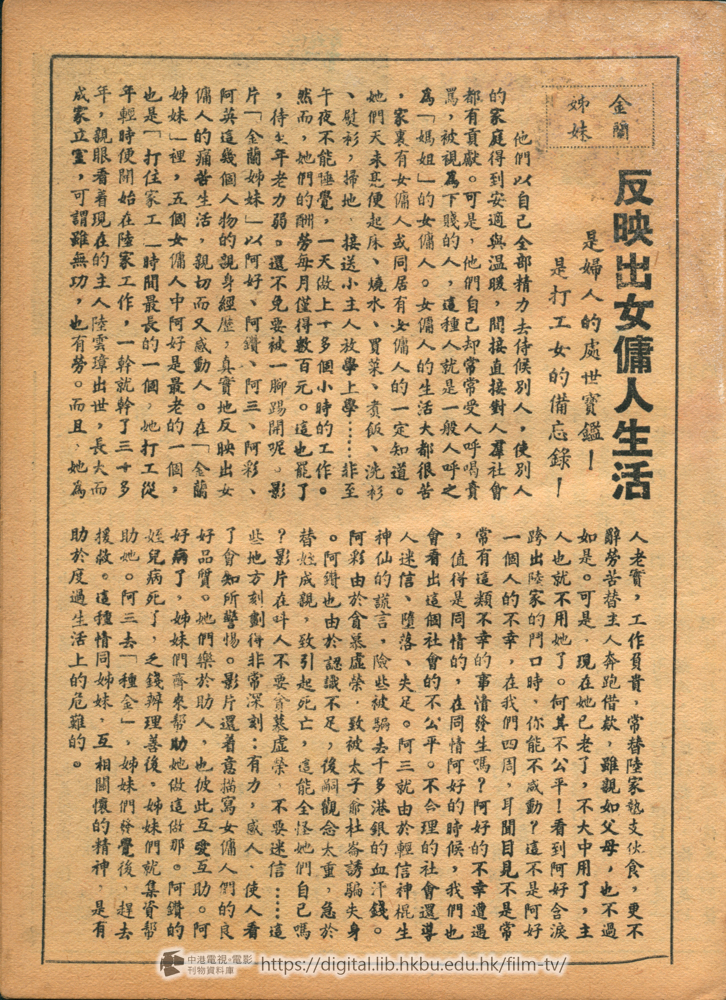 金蘭
姊妹
反映出女傭人生活
是婦人的處世寶鑑！
是打工女的備忘錄！
他們以自己全部精力去侍候別人，使別人
的家庭得到安適與溫暖，間接直接對人羣社會
都有貢獻。可是，他們自己却常常受人呼喝責
罵，被視爲下賤的人，這種人就是一般人呼之
爲「媽姐」的女傭人。女傭人的生活大都很苦
，家裏有女傭人或同居有女傭人的一定知道。
她們天未亮便起床、燒水、買菜、煮飯、洗衫
、熨衫，掃地、接送小主人放學上學……非至
午夜不能睡覺，一天做上十多個小時的工作。
然而，她們的酬勞每月僅得數百元。這也罷了
，待年老力弱。還不免要被一脚踢開呢。影
片「金蘭姊妹」以阿好、阿鑽、阿三、阿彩、
阿英這幾個人物的親身經歷，真實地反映出女
傭人的痛苦生活，親切而又感動人。在「金蘭
姊妹」裡，五個女傭人中阿好是最老的一個，
也是「打住家工」時間最長的一個，她打工從
年輕時便開始在陸家工作，一幹就幹了三十多
年，親眼看着現在的主人陸雲璋出世，長大而
成家立室，可謂雖無功，也有勞。而且，她爲
人老實，工作負責，常替陸家墊支伙食，更不
辭勞苦替主人奔跑借欵，雖親如父母，也不過
如是。可是，現在她已老了，不大中用了，主
人也就不用她了。何其不公平！看到阿好含淚
跨出陸家的門口時，你能不感動？這不是阿好
一個人的不幸，在我們四周，耳聞目見不是常
常有這類不幸的事情發生嗎？阿好的不幸遭遇
，值得是同情的，在同情阿好的時候，我們也
會看出這個社會的不公平。不合理的社會還導
人迷信、墮落、失足。阿三就由於輕信神棍生
神仙的謊言，險些被騙去千多港銀的血汗錢。
阿彩由於貪慕虛榮，致被太子爺杜峇誘騙失身
。阿鑽也由於認識不足，後嗣觀念太重，急於
替姪成親，致引起死亡，這能全怪她們自己嗎
？影片在叫人不要貪慕虛榮，不要迷信……這
些地方刻劃得非常深刻：有力，感人，使人看
了會知所警惕。影片還着意描寫女傭人們的良
好品質。她們樂於助人，也彼此互愛互助。阿
好病了，姊妹們齊來幫助她做這做那。阿鑽的
姪兒病死了，乏錢辦理善後。姊妹們就集資幫
助她。阿三去「種金」，姊妹們發覺後，趕去
援救。這種情同姊妹，互相關懷的精神，是有
助於度過生活上的危難的。
中港電視·電影
刊物資料庫
https://digital.lib.hkbu.edu.hk/film-tv/